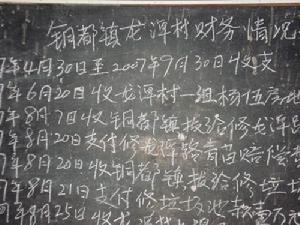 铜都镇龙潭村财务情况
7年4月30日至2007年9月30日收支
7年6月20日收龙潭村一组杨伍
7年8月7日收铜都镇拨给修龙潭
7年8月20日支付修龙潭路青苗赔偿
7年8月20日收铜都镇拨给修垃圾
7年8月21日支付修垃圾池款壹万
年8月25日收